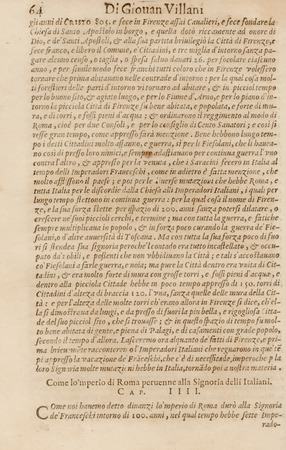 64 Di Giouan Villani
gli anni di CRISTO 805. e fece in Firenze assai Caualieri, e fece fondare la
Chiesa di Santo Apostolo in borgo, e quella dotò riccamente ad onore di
Dio, e de' Santi Apostoli, & alla sua partita breuilegiò la Città di Firenze, e
fece franco, e libero il Comune, e Cittadini, e tre miglia d'intorno sanza pa-
gare alcuno censo, o taglia, o spesa saluo danari 26. per focolare ciascuno
anno, e per simile modo fece franchi tutti coloro che in Firenze volessero
tornare che prima abitauano nelle contrade d'intorno: per la qual cosa mol-
ti forestieri delle parti d'intorno ui tornaro ad abitare, & in piccol tempo
per lo buono sito, & agiato luogo, e per lo Fiume d'Arno, e per lo piano d'in-
torno la piccola Città di Firenze fu bene abitata, e popolata, e forte di mu-
ra, e di torri, e fossi pieni d'acqua: & ordinarono il reggimento al modo di
Roma, cioè per due Consoli, e per lo consiglio di Cento Senatori; e così si
resse gran tempo, come appresso farà menzione. Bene hebbono lungo tem-
po i detti Cittadini molto affanno, e guerra, sì per li Fiesolani, che li hauea-
no così di presso loro nimici, e sempre andauano per continua guerra l'uno
contra l'altro, & appresso per la venuta, che i Saracini fecero in Italia al
tempo delli Imperadori Franceschi, come in adietro è fatta menzione, che
molto afflissono il paese; e poi per le diuerse mutazioni che hebbe Roma, e
tutta Italia per le discordie della Chiesa alli Imperadori Italiani, i quali per
lungo tempo stettono in continua guerra: per la qual cosa il nome di Firen-
ze, e la sua forza stette per ispazio di 200. anni sanza potersi dilatare, o
crescere ne' suoi piccoli cerchi, e termine; ma con tutta la guerra, e fatiche
sempre multiplicaua in popolo, & in forza poco curando la guerra di Fie-
sole, o d'altre auuersità di Toscana. Ma con tutta la sua forza poco di fuo-
ri si stendea sua signoria perche'l contado era tutto incastellato, & occu-
pato da nobili, e possenti che non vbbidiuano la Città; e tali s'accostauano
co' Fiesolani a farle guerra, noia; ma pure la Città dentro era vnita di Cit-
tadini, & era molto forte di mura con grosse torri, e fossi pieni d'acqua, e
dentro alla piccola Cittade hebbe in poco tempo appresso da 150. torri di
Cittadini d'altezza di braccia 120. l'una, sanza quelle delle mura della Cit-
tà: e per l'altezza delle molte torri ch'erano allora in Firenze si dice, ch'el-
la si dimostraua da lungi, e da presso di fuori la più bella, e rigogliosa Citta-
de del suo piccol sito, che si trouasse; & in questo spazio di tempo fu mol-
to bene abitata di gente, e piena di Palagi, e di casamenti con grande popolo,
secondo il tempo d'allora. Lasceremo ora alquanto de' fatti di Firenze, e pri-
ma brieuemente racconteremo de' l'Imperadori Italiani che regnarono in que'
tempi appresso la vacazione de' Franceschi, che è di necessitade, imperoche per la
loro Signoria molte mutazioni hebbe in Italia, tornando poi a nostra materia.
Come lo'mperio di Roma peruenne alla Signoria delli Italiani.
CAP. IIII.
COme noi hauemo detto dinanzi lo'mperio di Roma durò alla Signoria
de' Franceschi intorno di 100. anni, nel qual tempo hebbe sette Impe-
rado-